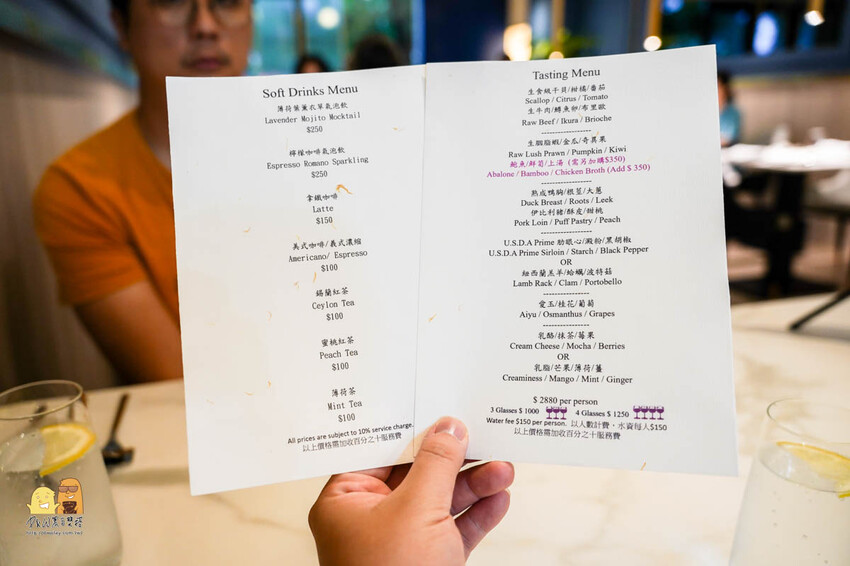 Soft Drinks Menu
薄荷紫薰衣草氣泡飲
Lavender Mojito Mocktail
$250
檸檬咖啡氣泡飲
Espresso Romano Sparkling
$250
拿鐵咖啡
Latte
$150
美式咖啡/義式濃縮
Americano/ Espresso
$100
錫蘭紅茶
Ceylon Tea
$100
蜜桃紅茶
Peach Tea
$100
薄荷茶
Mint Tea
$100
All prices are subject to 10% service charge.
以上價格需加收百分之十服務費
Tasting Menu
生食級干貝/柑橘/番茄
Scallop / Citrus / Tomato
生牛肉/鱒魚卵/布里歐
Raw Beef / Ikura / Brioche
------------------
生胭脂蝦/金瓜/奇異果
Raw Lush Prawn / Pumpkin / Kiwi
鮑魚/鮮筍/上湯 (需另加購$350)
Abalone / Bamboo / Chicken Broth (Add $ 350)
------------------
熟成鴨胸/根莖/大蔥
Duck Breast / Roots / Leek
伊比利豬/酥皮/甜桃
Pork Loin / Puff Pastry / Peach
------------------
U.S.D.A Prime 肋眼心/澱粉/黑胡椒
U.S.D.A Prime Sirloin / Starch / Black Pepper
OR
紐西蘭羔羊/蛤蠣/波特菇
Lamb Rack / Clam / Portobello
------------------
愛玉/桂花/葡萄
Aiyu / Osmanthus / Grapes
------------------
乳酪/抹茶/莓果
Cream Cheese / Mocha / Berries
OR
乳脂/芒果/薄荷/薑
Creaminess / Mango / Mint / Ginger
$ 2880 per person
3 Glasses $ 1000 4 Glasses $ 1250
Water fee $150 per person. 以人數計費，水資每人$150
以上價格需加收百分之十服務費